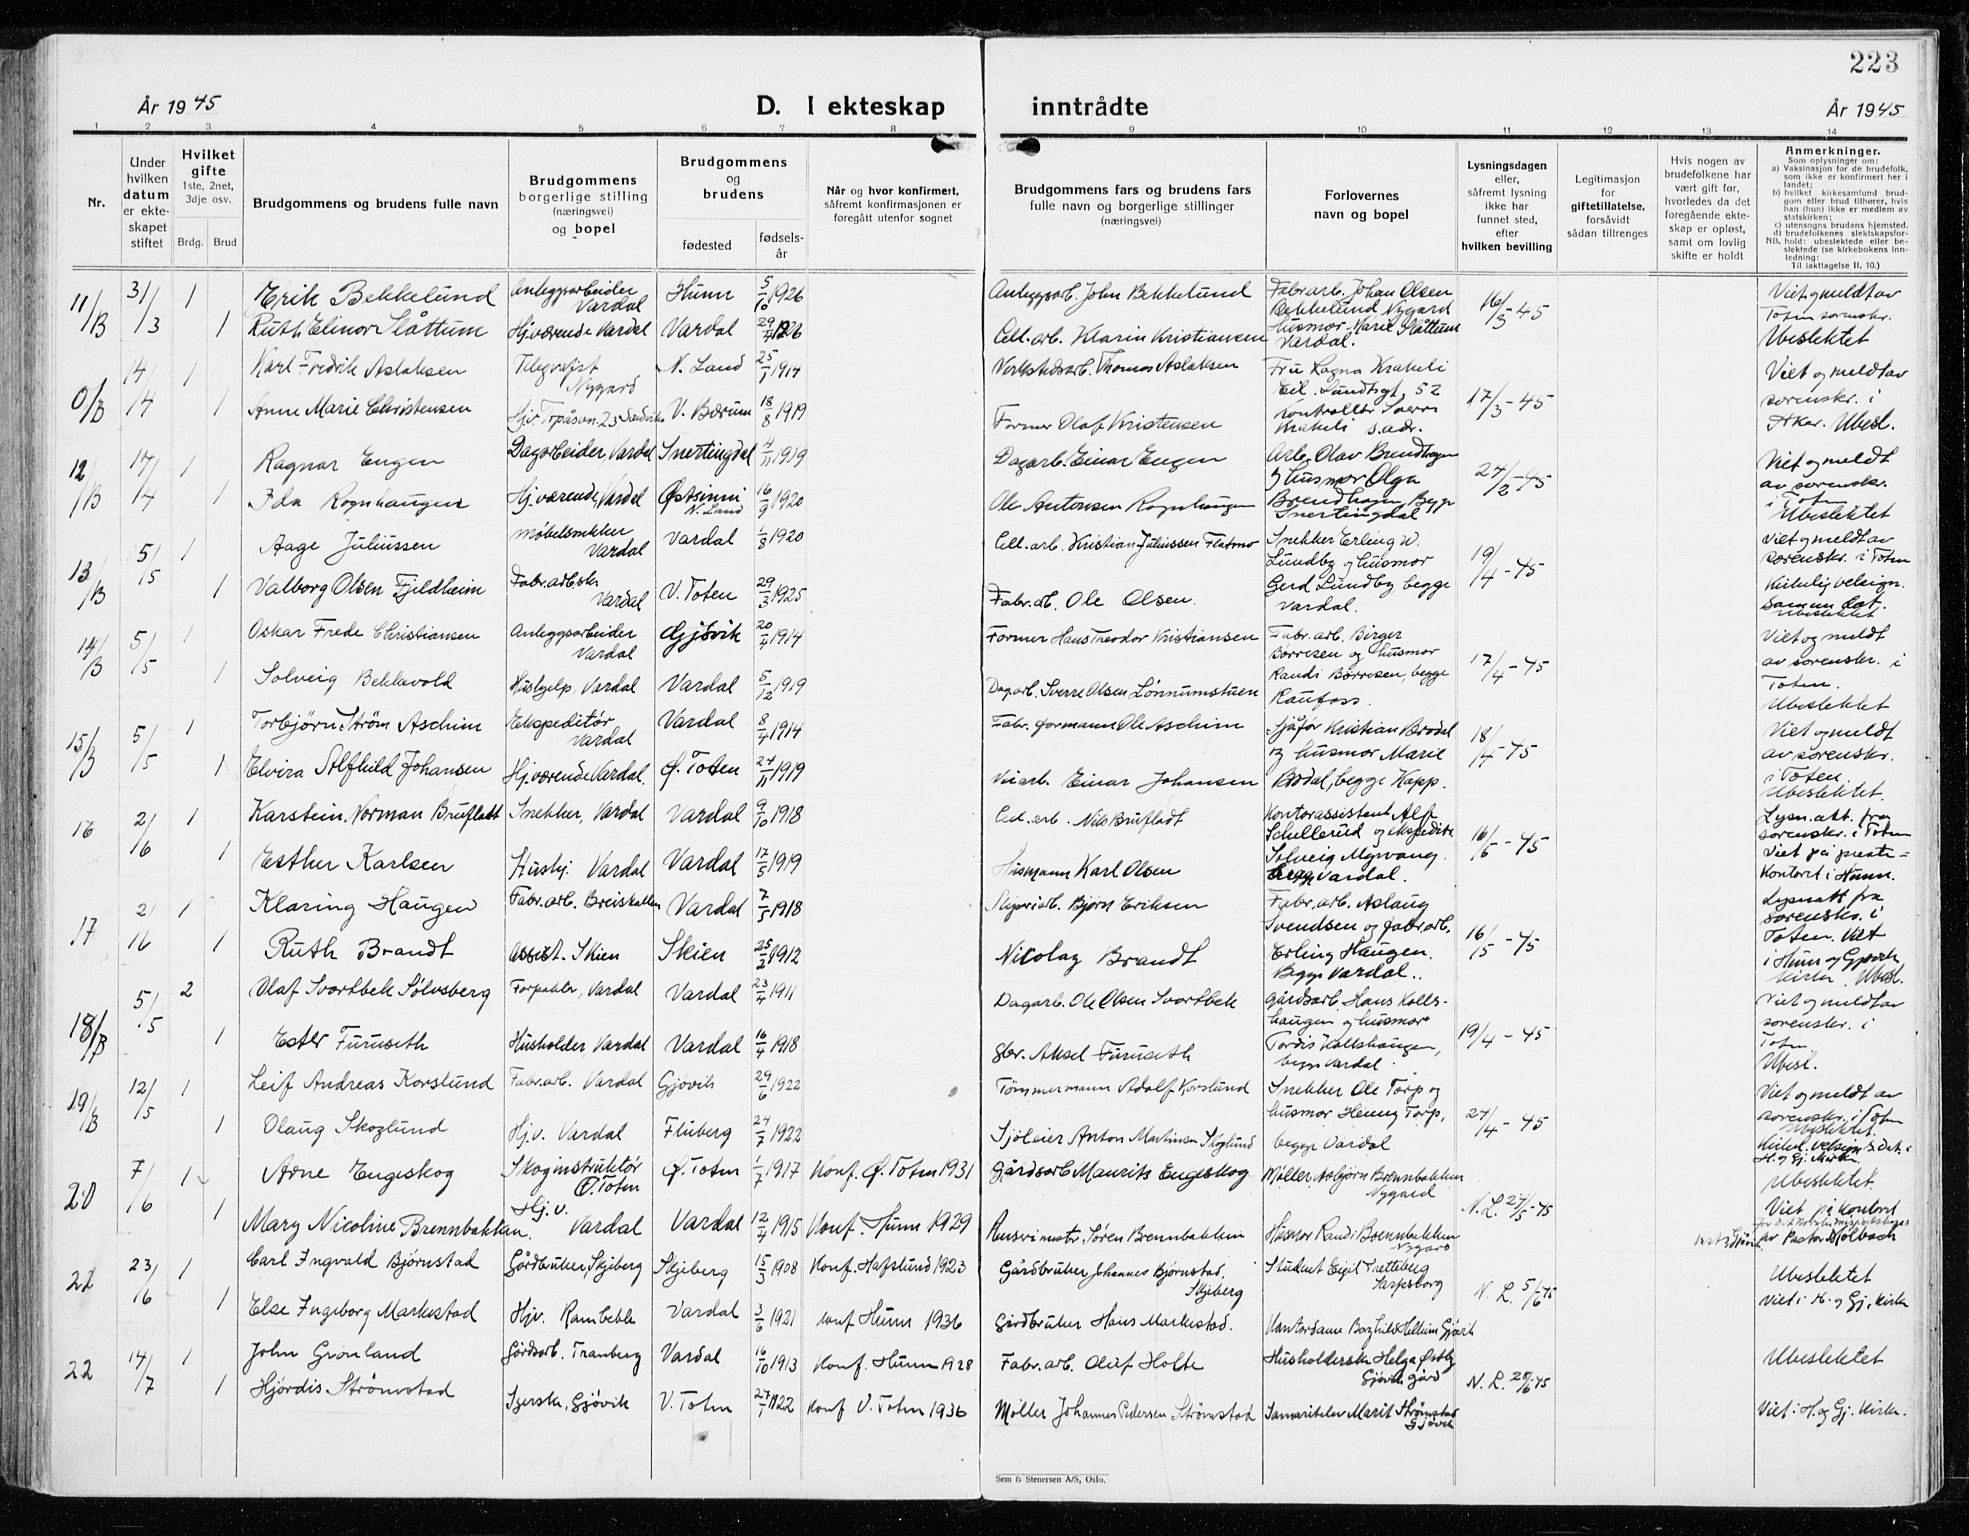 223
År 1945
D. I ekteskap inntrådte
År 1945
1 2 3 4 5 6 7 8 9 10 11 12 13 14
Nr.
Under hvilken datum er ekteskapet stiftet
Hvilket gifte 1ste, 2net, 3dje osv.
Brdg. Brud
Brudgommens og brudens fulle navn
Brudgommens borgerlige stilling (næringsvei) og bopel
Brudgommens og brudens
fødested
fødselsår
Når og hvor konfirmert, såfremt konfirmasjonen er foregått utenfor sognet
Brudgommens fars og brudens fars fulle navn og borgerlige stillinger (næringsvei)
Forlovernes navn og bopel
Lysningsdagen eller, såfremt lysning ikke har funnet sted, efter hvilken bevilling
Legitimasjon for giftetillatelse, forsåvidt sådan tiltrenges
Hvis nogen av brudefolkene har vært gift før, hvorledes da det foregående ekteskap er opløst, samt om lovlig skifte er holdt
Anmerkninger.
Som oplysninger om:
a) Vaksinasjon for de brudefolk, som ikke er konfirmert her i landet;
b) hvilket kirkesamfund brudgom eller brud tilhører, hvis han (hun) ikke er medlem av statskirken;
c) utensogns brudens hjemsted.
d) brudefolkenes slektskapsforhold: ubeslektede eller beslektede (se kirkebokens innledning:
NB.
Til iakttagelse II. 10.)
11/B 31/3 1 Erik Bekkelund Anleggsarbeider Vardal Hunn 5/10 1926 Anleggsarb. John Bekkelund Fabr.arb. Johan Olsen Bekkelund Nygard 16/3-45 Viet og meldt av Toten sorenskr.
1 Ruth Elinor Slåttum Hj.værende Vardal Vardal 29/4 1926 Cell.arb. Klarin Kristiansen Husmor Marie Slåttum Vardal. Ubeslektet
0/B 14/4 1 Karl Fredrik Aslaksen Telegrafist Nygard N. Land 25/1 1914 Verkstedsarb. Thomas Aslaksen Fru Ragna Krakeli Eil. Sundtsgt. 52 17/3-45 Viet og meldt av sorenskr. i
1 Anne Marie Christensen V. Bærum 18/8 1919 Former Olaf Kristensen Kontrollør Sverre Krakeli s.adr. Aker. Ubesl.
12/B 14/4 1 Ragnar Engen Dagarbeider Vardal Snertingdal 4/11 1919 Dagarb. Einar Engen Arb. Olav Brendhagen og husmor Olga 24/2-45 Viet og meldt av sorenskr.
1 Ida Rognhaugen Hj.værende, Vardal Østsinni N. Land 16/9 1920 Ole Antonsen Rognhaugen Brendhagen, Begge Snertingdal i Toten Ubeslektet
13/B 5/5 1 Aage Juliussen Møbelsnekker Vardal Vardal 1/8 1920 Cell.arb. Kristian Juliussen Flatmo Snekker Erling W. Lundby og husmor 19/4-45 Viet og meldt av sorenskr. i Toten
1 Valborg Olsen Fjeldheim Fabr.arbske Vardal V. Toten 29/3 1925 Fabr.arb. Ole Olsen. Gerd Lundby begge Vardal. Kirkelig velsign. samme dat. Ubeslektet
14/B 5/5 1 Oskar Frede Christiansen Anleggsarbeider Vardal Gjøvik 20/4 1914 Former Hans Theodor Kristiansen Fabr.arb. Birger Børresen og husmor 17/4-45 Viet og meldt av sorenskr. i
1 Solveig Bekkevold Hushjelp, Vardal Vardal 5/12 1919 Dagarb. Sverre Olsen Lønnumstuen Randi Børresen, begge Raufoss. Toten. Ubeslektet
15/B 5/5 1 Torbjørn Strøm Aschim Ekspeditør Vardal Vardal 8/4 1914 Fabr.formann Ole Aschim Sjåfør Kristian Brodal og husmor Marie 18/4-45 Viet og meldt av sorenskr.
1 Elvira Alfhild Johansen Hj.værende Vardal. Ø. Toten 24/11 1919 Veiarb. Einar Johansen Brodal, begge Kapp. i Toten. Ubeslektet.
16 2/6 1 Karstein Norman Brufladt Snekker, Vardal Vardal 9/10 1918 Cell.arb. Nils Brufladt Kontorassistent Alf Schellerud og ekspeditr. 16/5-45 Lysn.att. fra sorenskr. i Toten
1 Esther Karlsen Hushj. Vardal Vardal 17/5 1919 Husmann Karl Olsen Solveig Myrvang. begge Vardal. Viet på prestekontoret i Hunn.
17 2/16 1 Klaring Haugen Fabr.arb. Breiskallen Vardal 7/5 1918 Bjørn Eriksen Fabr.arb. Aslaug Svendsen og fabr.arb. 16/5-45 Lysn.att fra sorenskr. i
1 Ruth Brandt Assist. Skien Skien 25/2 1912 Nicolay Brandt Erling Haugen. Begge Vardal.. Toten. Viet i Hunn og Gjøvik kirke. Ubesl.
18/B 5/5 2 Olaf Svartbek Sølvsberg Forpakter, Vardal Vardal 23/4 1911 Dagarb. Ole Olsen Svartbek Gårdsarb. Hans Kolls-haugen og husmor 19/4-45 Viet og meldt av sorenskr. i
1 Ester Furuseth Husholder Vardal Vardal 16/4 1918 Gbr. Aksel Furuseth Tordis Kollshaugen, begge Vardal. Toten Ubesl.
19/B 12/5 1 Leif Andreas Korslund Fabr.arb. Vardal Gjøvik 29/6 1922 Tømmermann Adolf Korslund Snekker Ole Torp og 24/4-45 Viet og meldt av sorenskr. i Toten
1 Olaug Skoglund Hj.v. Vardal Fluberg 24/7 1922 Anton Martinsen Skoglund husmor Henny Torp, begge Vardal Ubeslektet. Kirkel. velsign. s. dat. i H. og Gj. kirke
20 7/6 1 Arne Engeskog Skoginstruktør Ø. Toten Ø. Toten 1/7 1917 Konf. Ø. Toten 1931 Gårdsarb Maurits Engeskog Møller Asbjørn Brennbakken Nygard N.L. 24/5-45 Ubeslektet.
1 Mary Nicoline Brennbakken Hj.v. Vardal Vardal 12/4 1915 Konf. Hunn 1929 Søren Brennbakken Husmor Randi Brennbakken Nygard Viet på kontoret av Pastor Mølbach
21 23/6 1 Carl Ingvald Bjørnstad Gårdbruker, Skjeberg Skjeberg 15/3 1908 Konf. Hafslund 1923 Gårdbruker Johannes Bjørnstad, Skjeberg Student Eigil Tretteberg Sarpsborg N.L. 5/6-45 Ubeslektet
1 Else Ingeborg Markestad Hjv. Rambekk Vardal 3/6 1921 Konf Hunn 1936 Gårdbruker Hans Markestad. Kontordame Borghild Hellum Gjøvik Viet i H. og Gj. kirke
22 14/7 1 John Grønland Gårdsarb. Tranberg Vardal 16/10 1913 Konf. Hunn 1928 Fabr.arb. Oluf Holte Husholderske Helga Østby Gjøvik gård N.L. 20/6-45 Ubeslektet
1 Hjørdis Strømstad Syerske, Gjøvik V. Toten 27/1 1922 Konf V. Toten 1936 Møller Johannes Pedersen Strømstad Samaritelev Marit Strømstad Gjøvik Viet i H. og Gj. kirke.
Sem & Stenersen A/S, Oslo.